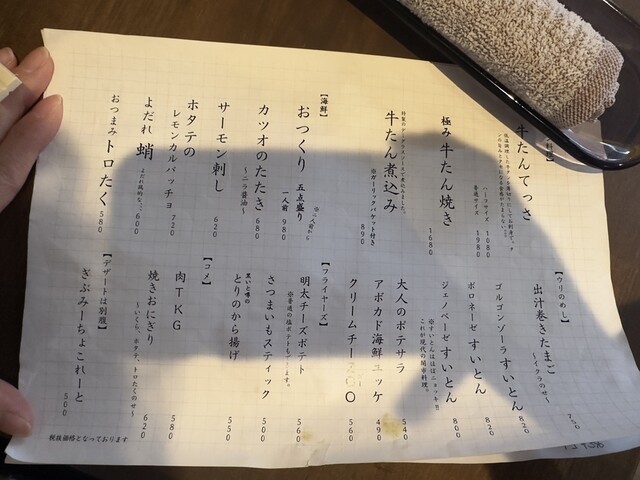 牛たんてっさ
ハーフサイズ 1080
普通サイズ 1980
極み 牛たん焼き
1680
牛たん煮込み
※ガーリックバケット付き
890
【海鮮】
おつくり 五点盛り
一人前 980
カツオのたたき
～ニラ醤油～
680
サーモン刺し
620
ホタテの
レモンカルパッチョ 720
よだれ 蛸
600
おつまみ トロたく 580
【ウリのめし】
出汁巻きたまご
～イクラのせ～
750
ゴルゴンゾーラすいとん
820
ボロネーゼ すいとん
820
ジェノベーゼ すいとん
※すいとんはほぼニョッキ!!
これが現代の闇市料理。
800
大人のポテサラ
540
アボカド海鮮ユッケ
490
クリームチー
560
【フライヤーズ】
明太チーズポテト
※普通の塩ポテトもございます。
560
さつまいもスティック
500
黒いと噂の
とりのから揚げ
550
【コメ】
肉TKG
580
焼きおにぎり
～いくら、ホタテ、トロたくのせ～
620
【デザートは別腹】
ぎぶみーちょこれーと
500
税抜価格となっております